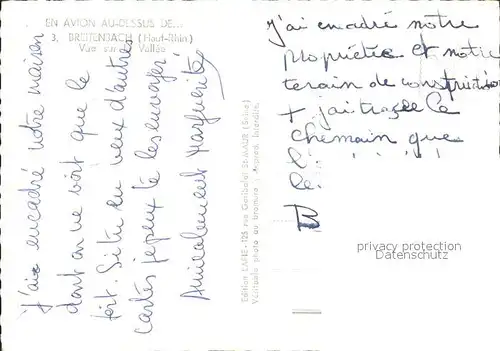 EN AVION AU-DESSUS DE...
3. BREITENBACH (Haut-Rhin)
Vue sur la Vallée
j'ai encadré notre maison
dont on ne voit que le
toit. Si tu en veux d'autres
cartes je peux te les envoyer.
Amicalement Marguerite
Edition LAPIE - 125 rue Garibaldi St-MAUR (Seine)
Véritable photo au Bromure - Reprod. Interdite.
j'ai encadré notre
Propriétée et notre
terain de construction
+ j'ai tracée Ce
Chemain que
privacy protection
Datenschutz